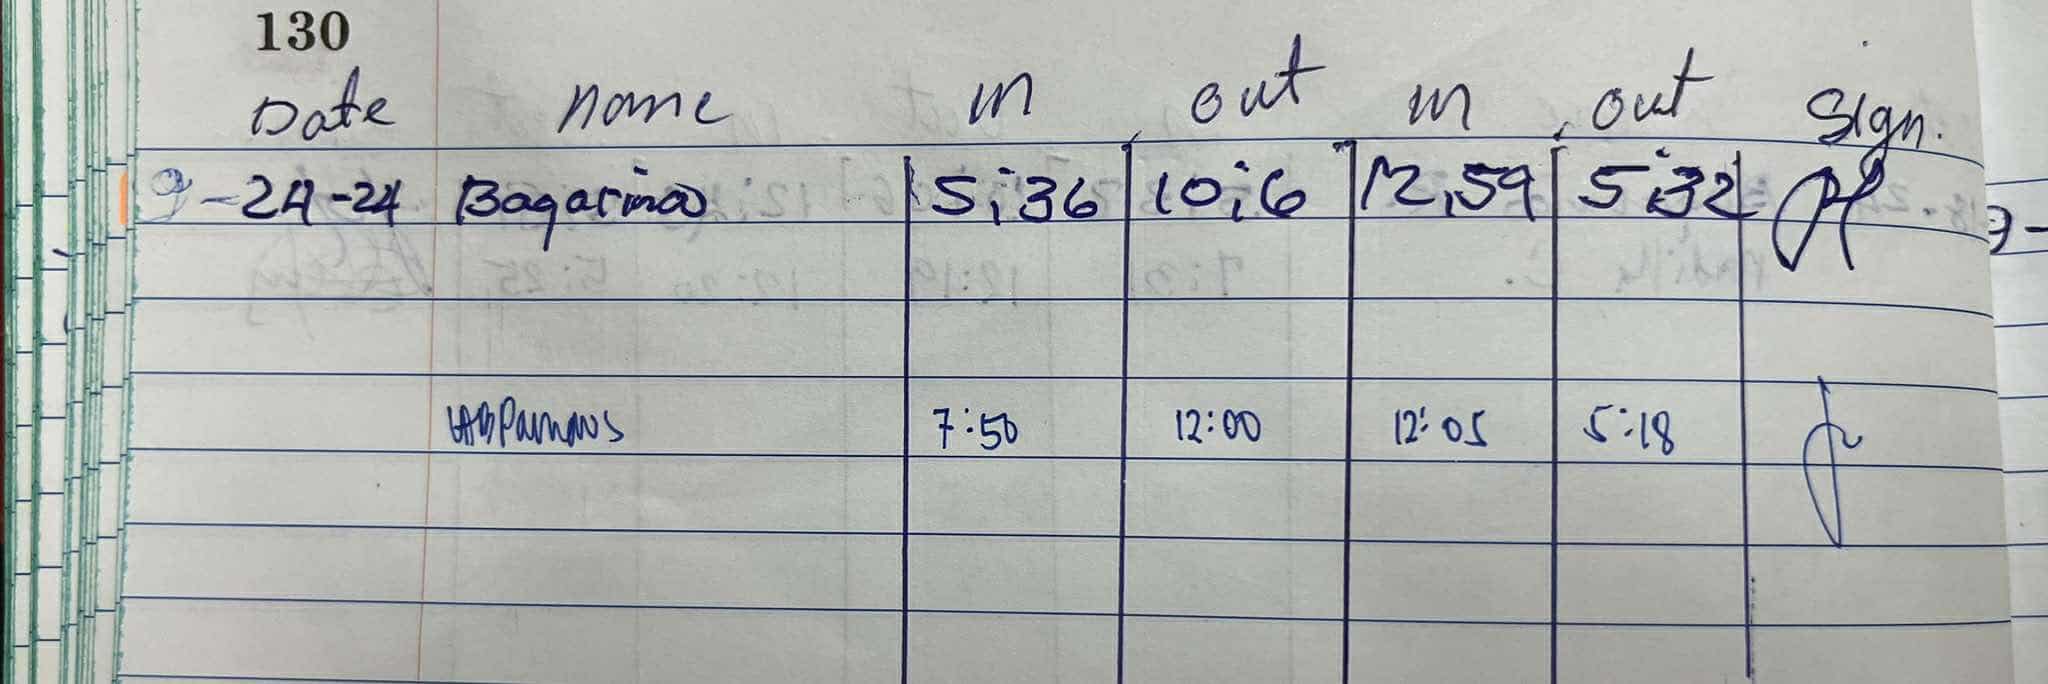 130
Date name in out in out Sign.
9-24-24 Bagarinao 5:36 10:6 12:59 5:32
7:50 12:00 12:05 5:18